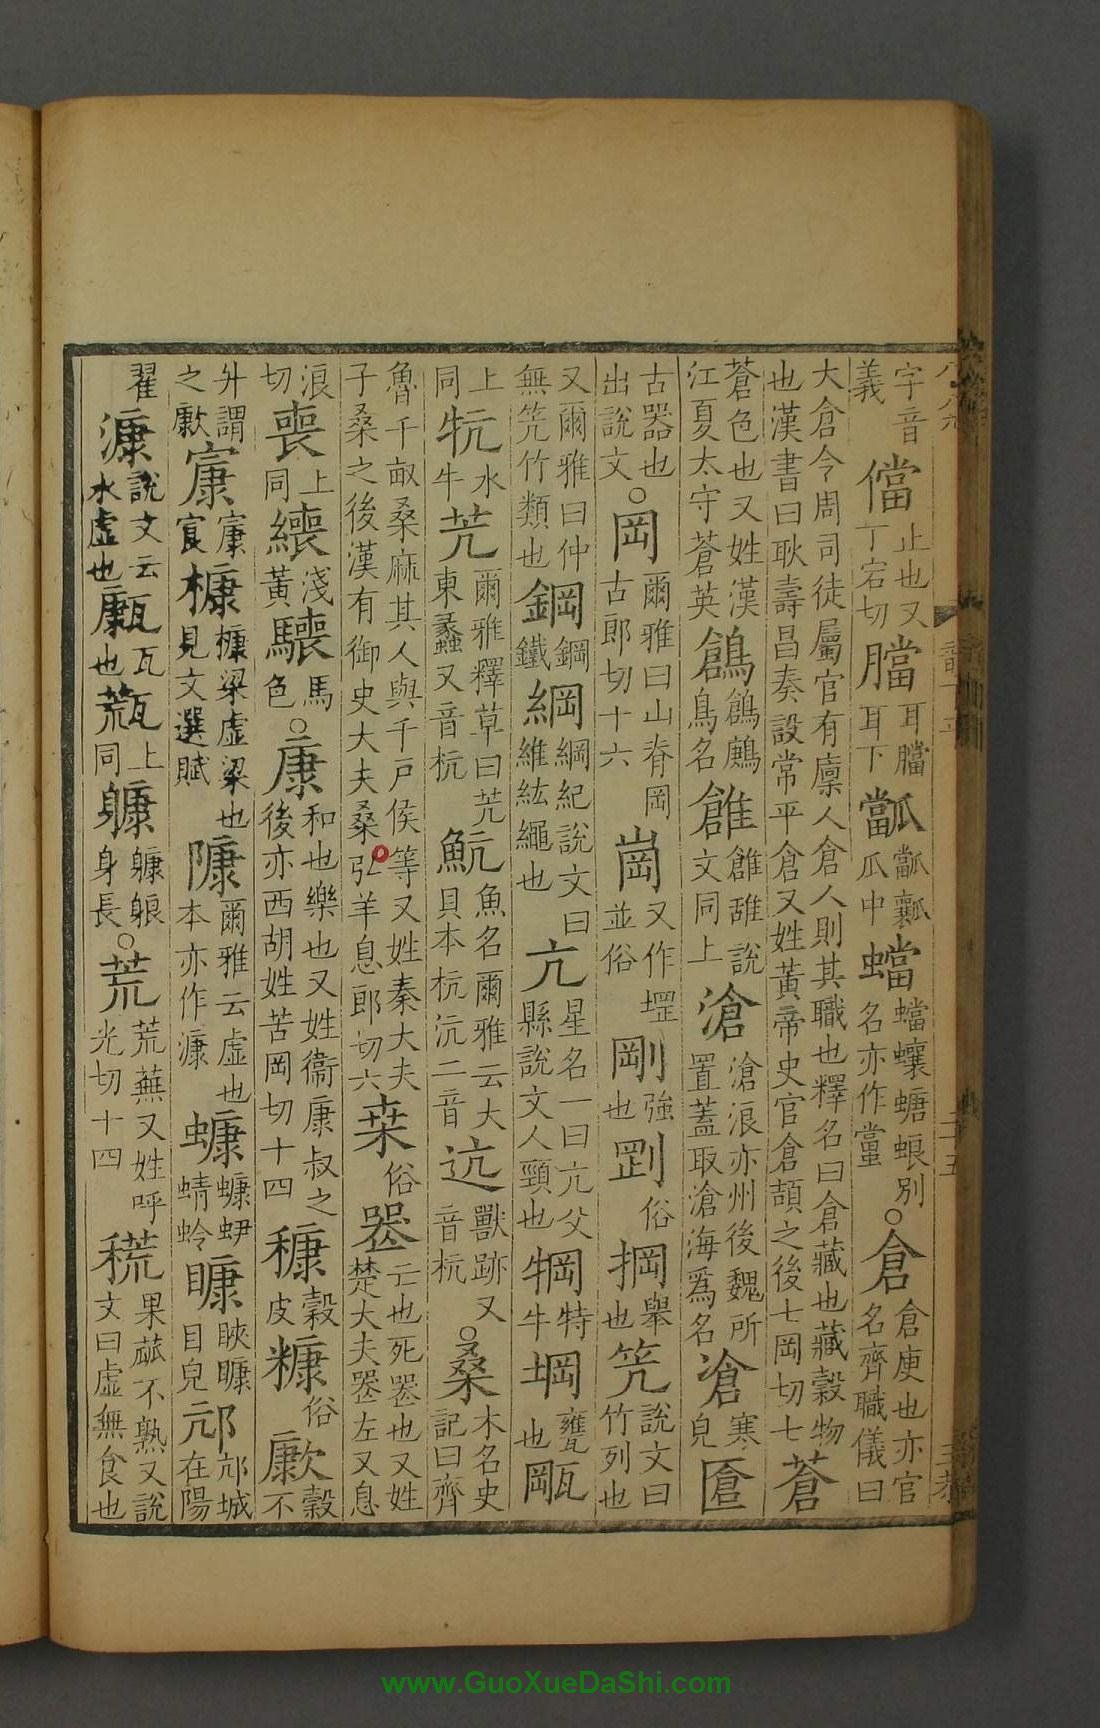 字音義儅止也又丁宕切璫耳璫耳下𤬾𤬾瓤瓜中蟷蟷蠰螗蜋別名亦作螳○倉倉庾也亦官名齊職儀曰
大倉令周司徒屬官有廩人倉人則其職也釋名曰倉藏也藏穀物也漢書曰耿壽昌奏設常平倉又姓黃帝史官倉頡之後七岡切七蒼
蒼色也又姓漢江夏太守蒼英鶬鶬鴰鳥名雂雂䧳說文同上滄滄浪亦州後魏所置蓋取滄海爲名凔寒皃匼
古器也出說文○岡爾雅曰山脊岡古郎切十六崗又作堽並俗剛強也㓻俗掆舉也笐說文曰竹列也
又爾雅曰仲無笐竹類也鋼鋼鐵綱綱紀說文曰維紘繩也亢星名一曰亢父縣說文人頸也犅特牛堈甕也㼚
上同牨水牛䒢爾雅釋草曰䒢東蠡又音杭魧魚名爾雅云大貝本杭沆二音迒獸跡又音杭○桑木名史記曰齊
魯千畝桑麻其人與千戶侯等又姓秦大夫子桑之後漢有御史大夫桑弘羊息郎切六桒俗喪亡也死喪也又姓楚大夫喪左又息
浪切喪上同𦆄淺黃𩥅馬色○康和也樂也又姓衞康叔之後亦西胡姓苦岡切十四穅穀皮糠俗歉穀不
升謂之歉㝩㝩㝗槺槺梁虛梁也見文選賦𨻷爾雅云虛也本亦作漮螰螰蛜蜻蛉䁱䀹䁱目皃邟邟城在陽
翟漮說文云水虛也㼹瓦也瓬上同躿躿䠀身長○荒荒蕪又姓呼光切十四䅣果蓏不熟又說文曰虛無食也
www.GuoXueDaShi.com